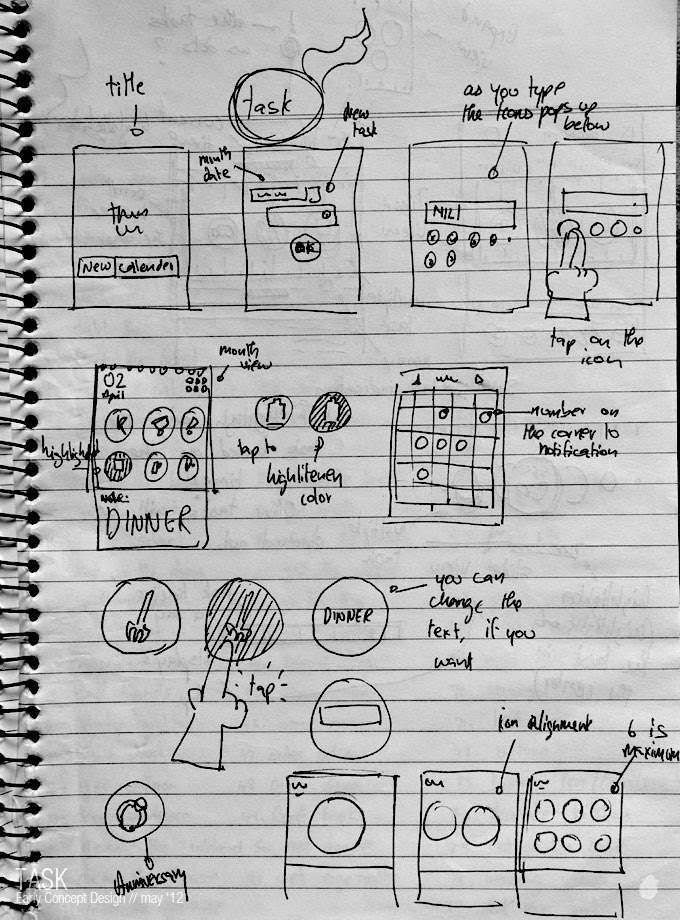 title
task
New
task
month
date
as you type
the icons pops up
below
New calender
OK
tap on the
icon
month
view
02
April
highlighted
Note:
DINNER
tap to
highlitened
color
number on
the corner to
notification
DINNER
you can
change the
text, if you
want
tap
icon alignment
6 is
maximum
Anniversary
TASK
Early Concept Design // may '12